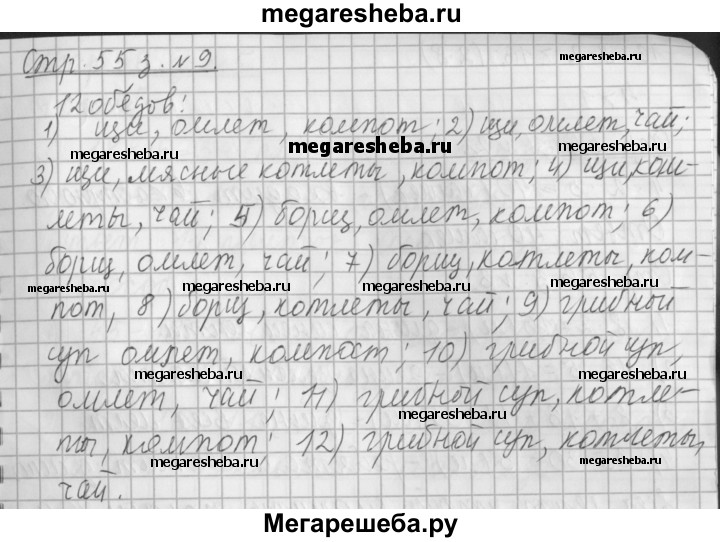 megaresheba.ru
Стр. 55 з. №9.
megaresheba.ru
12 обедов:
1) щи, омлет, компот; 2) щи, омлет, чай;
megaresheba.ru megaresheba.ru megaresheba.ru
3) щи, мясные котлеты, компот; 4) щи, кот-
леты, чай; 5) борщ, омлет, компот; 6)
борщ, омлет, чай; 7) борщ, котлеты, ком-
megaresheba.ru megaresheba.ru megaresheba.ru
пот, 8) борщ, котлеты, чай; 9) грибной
суп омлет, компост; 10) грибной суп,
megaresheba.ru megaresheba.ru
омлет, чай; 11) грибной суп, котле-
megaresheba.ru
ты, компот; 12) грибной суп, котлеты,
megaresheba.ru megaresheba.ru
чай.
Мегарешеба.ру